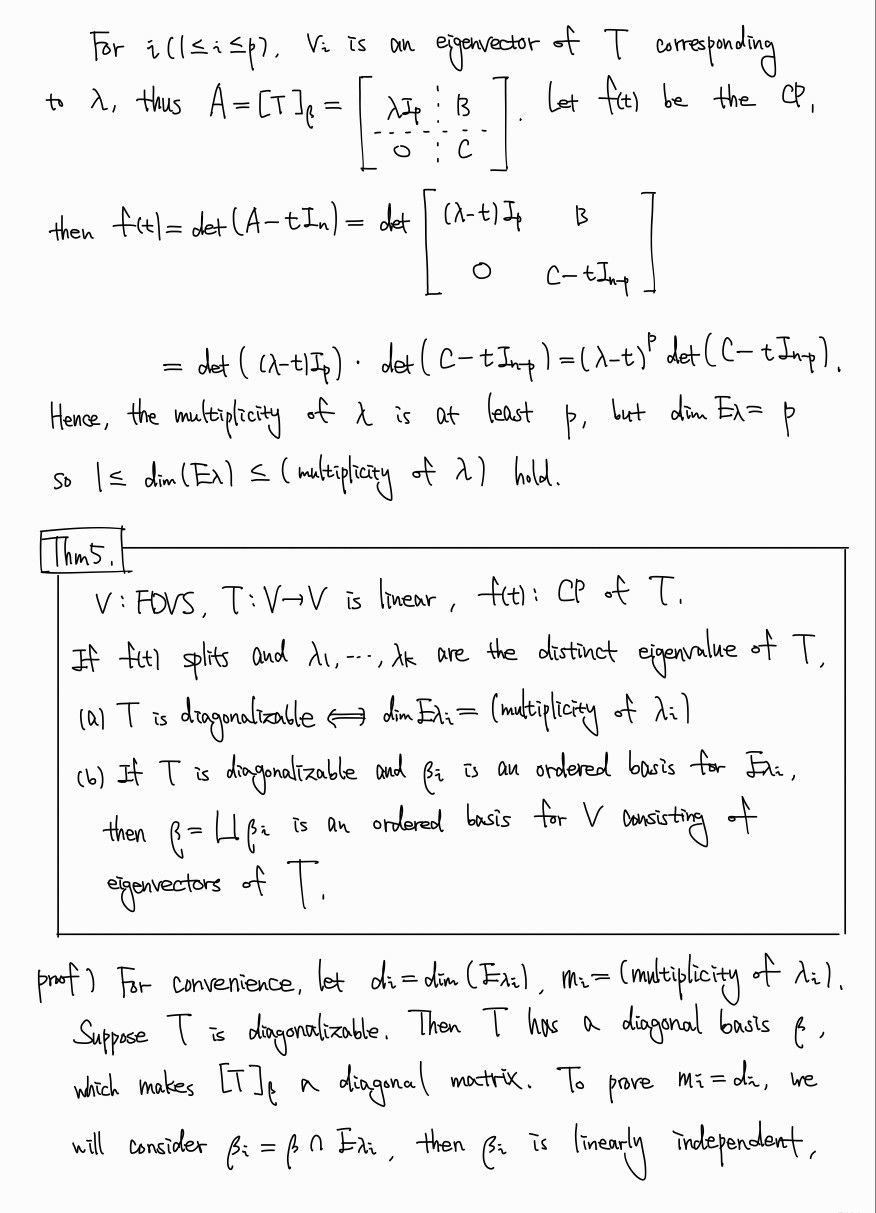 For i(1≤i≤p), Vi is an eigenvector of T corresponding
to λ, thus A = [T]β = [ λIp B ; O C ]. Let f(t) be the CP,
then f(t) = det(A-tIn) = det [ (λ-t)Ip B ; O C-tIn-p ]
= det((λ-t)Ip) · det(C-tIn-p) = (λ-t)^p det(C-tIn-p).
Hence, the multiplicity of λ is at least p, but dim Eλ = p
so 1≤ dim(Eλ) ≤ (multiplicity of λ) hold.
Thm5.
V : FDVS, T: V→V is linear, f(t): CP of T.
If f(t) splits and λ1, ..., λk are the distinct eigenvalue of T,
(a) T is diagonalizable ⟺ dim Eλi = (multiplicity of λi)
(b) If T is diagonalizable and βi is an ordered basis for Eλi,
then β = ⊔ βi is an ordered basis for V consisting of
eigenvectors of T.
proof) For convenience, let di = dim(Eλi), mi = (multiplicity of λi).
Suppose T is diagonalizable. Then T has a diagonal basis β,
which makes [T]β a diagonal matrix. To prove mi = di, we
will consider βi = β ∩ Eλi, then βi is linearly independent,